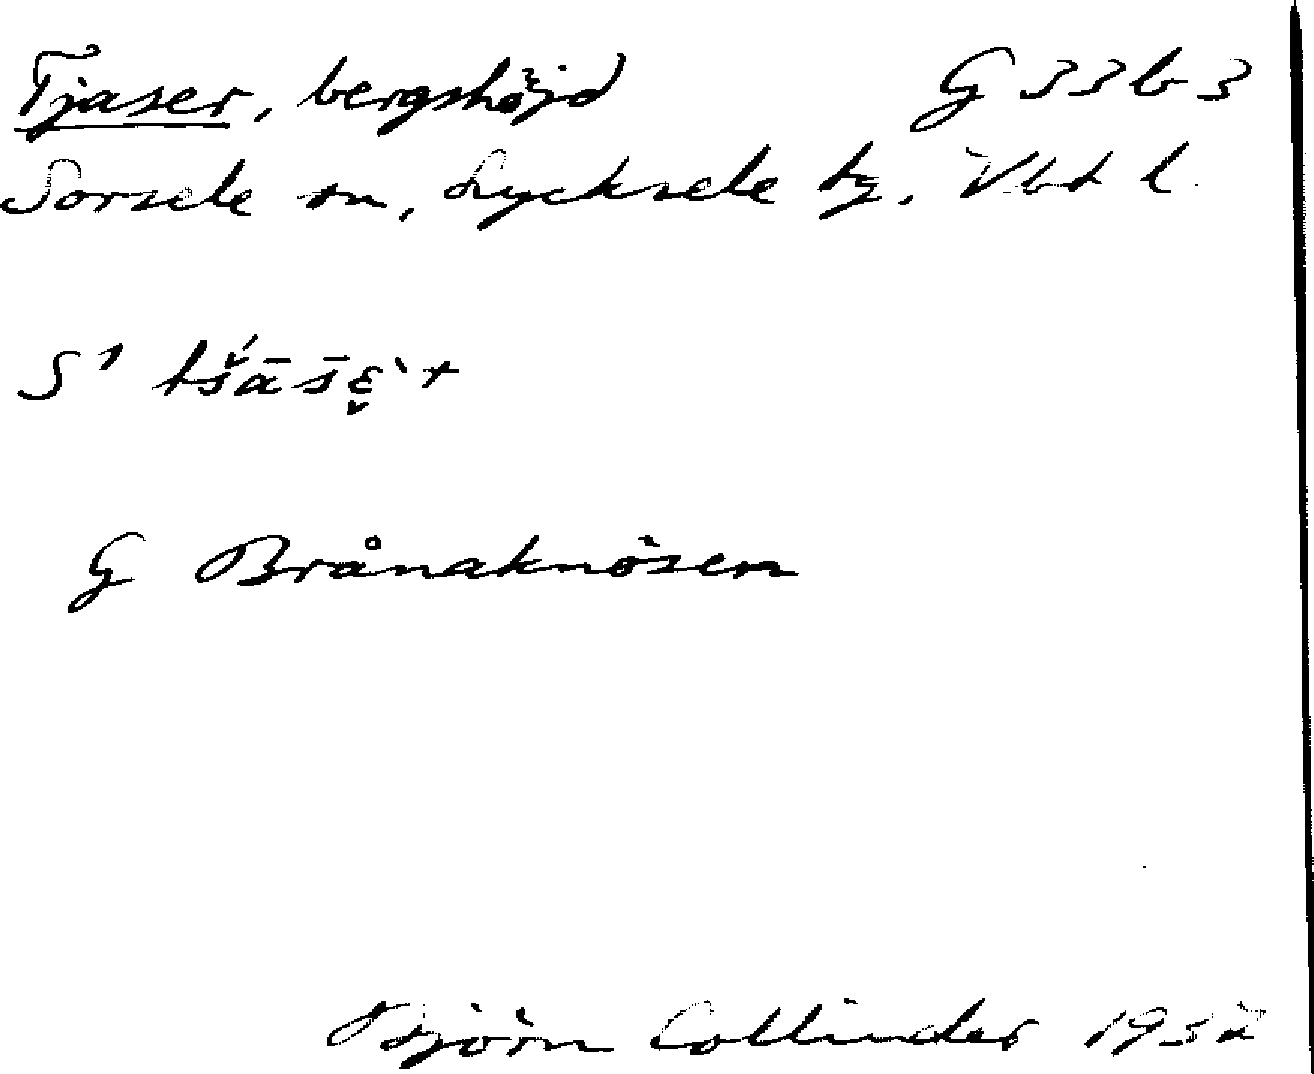 Tjaser, bergshöjd G 33 b 3
Sorsele sn, Lycksele tg. Vbt l.
S' tš́āsɛ̬̀r
G Brånaknösen
Björn Collinder 1932